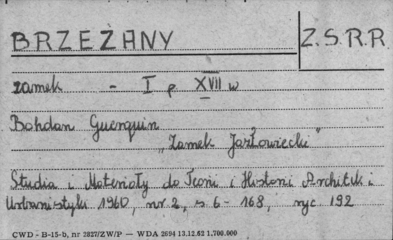 BRZEŻANY
Z.S.R.R
zamek - I p XVII w
Bohdan Guerquin
"Zamek Jazłowiecki"
Studia i Materiały do Teorii i Historii Architek i
Urbanistyki 1960, nr 2, s 6-168, ryc 192
CWD - B-15-b, nr 2827/ZW/P — WDA 2694 13.12.62 1.700.000